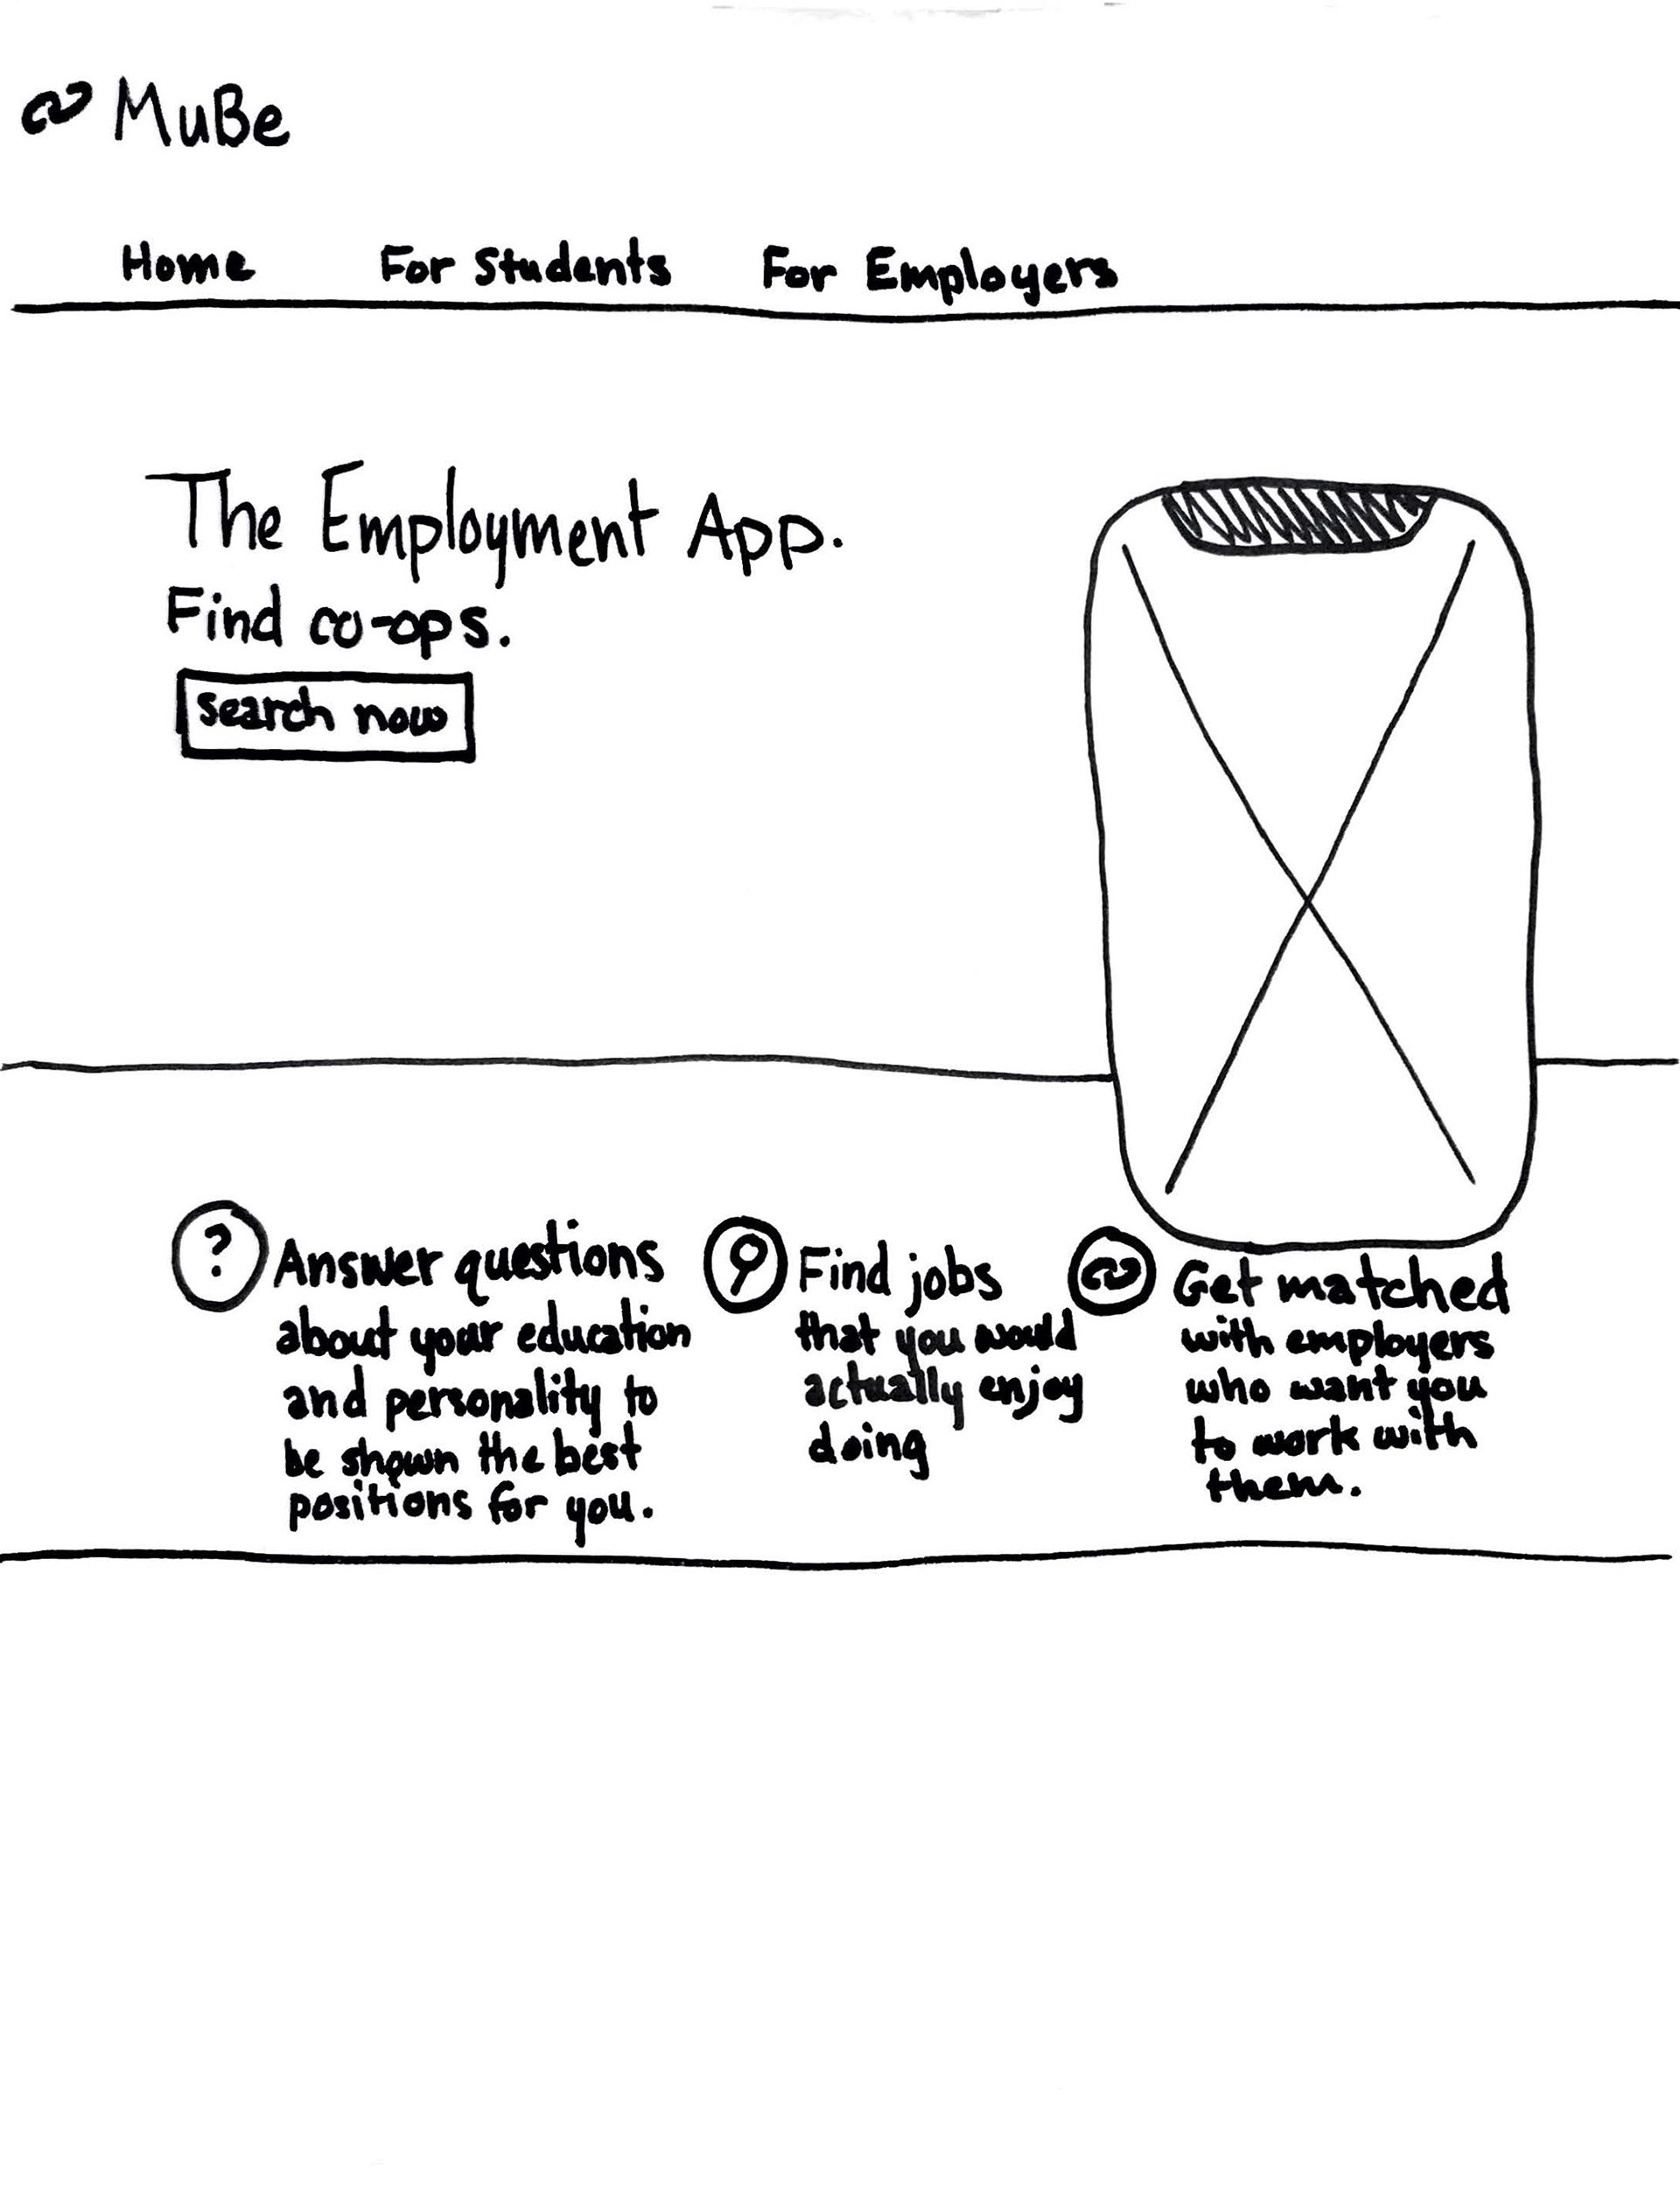 MuBe
Home For Students For Employers
The Employment App.
Find co-ops.
search now
? Answer questions
about your education
and personality to
be shown the best
positions for you.
Find jobs
that you would
actually enjoy
doing
Get matched
with employers
who want you
to work with
them.